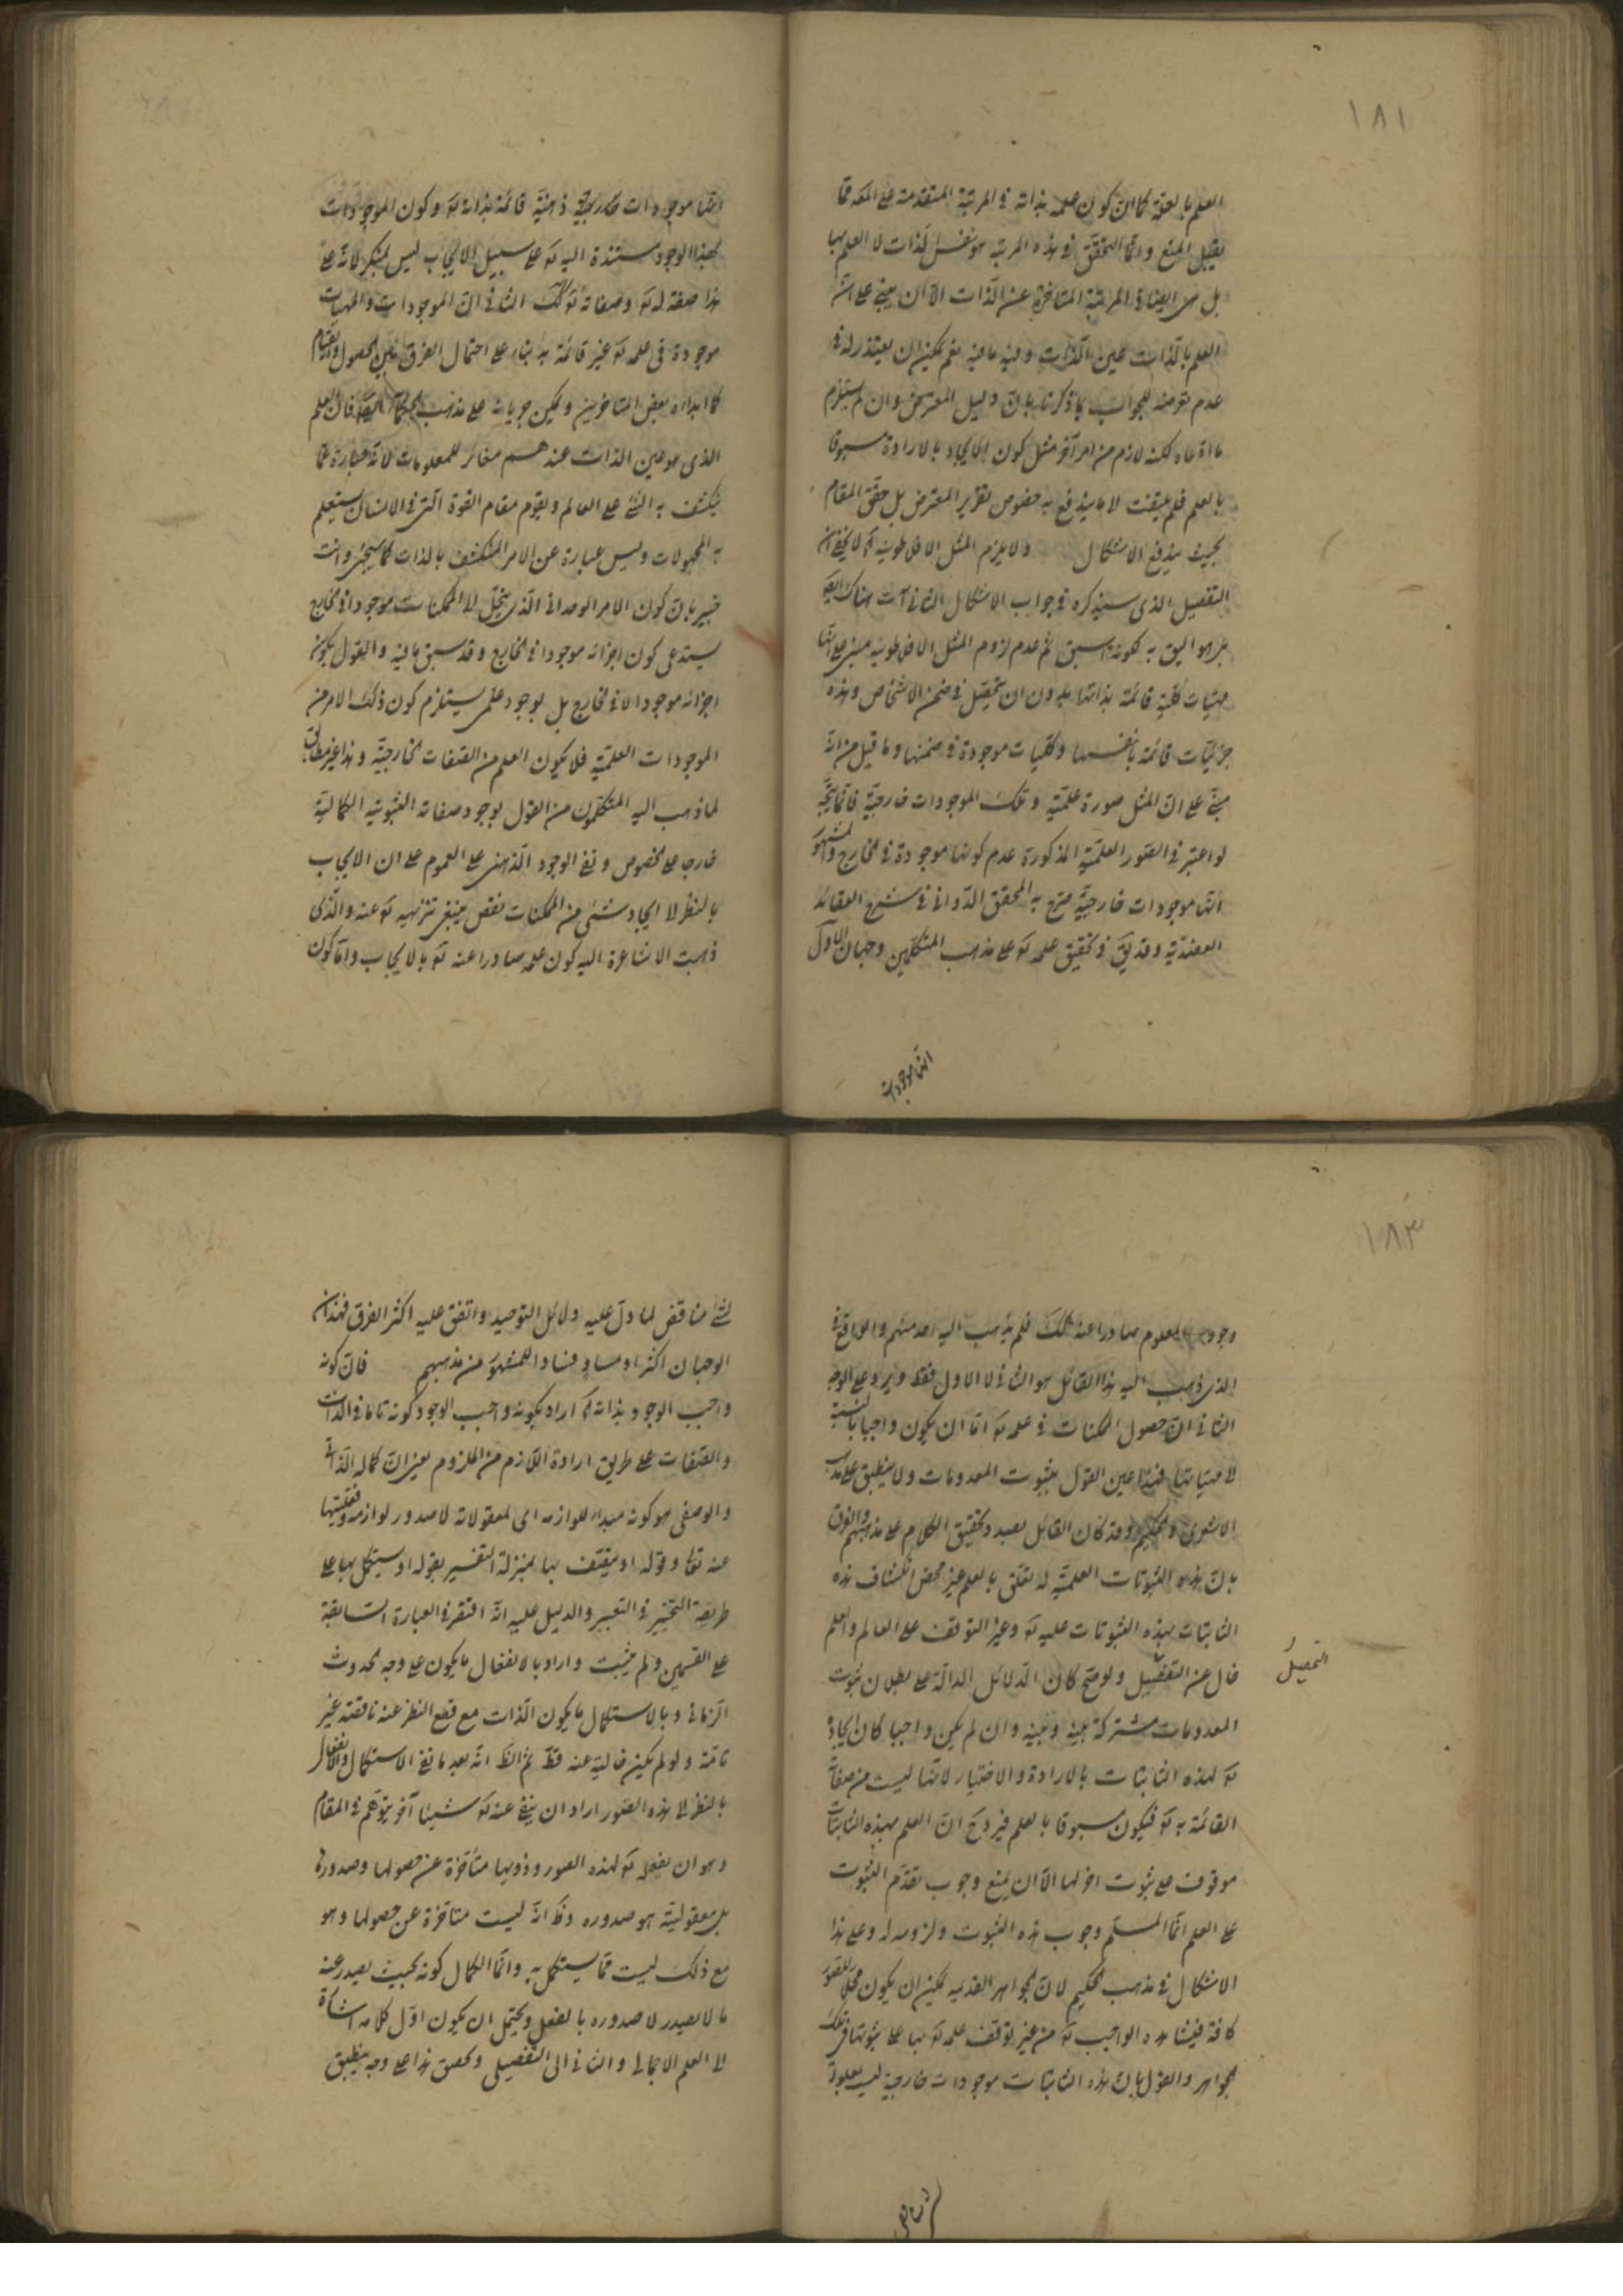 ١٨١
العلم بالعلة كما ان كون علمه بذاته فى المرتبة المتقدمة على المعه مما
يقبل المنع وانما المتحقق فى هذه المرتبة هو نفس الذات لا العلم بها
بل هى ايضا فى المرتبة المتاخرة عن الذات الا ان يبنى على ان
العلم بالذات عين الذات وفيه ما فيه نعم يمكن ان يعتذر له فى
عدم تعرضه للجواب بما ذكرنا بان دليل المعترض وان لم يستلزم
ما ادعاه لكنه لازم من امر آخر مثل كون الايجاد بالارادة مسبوقا
بالعلم فلم يلتفت لا ما يندفع به خصوص تقرير المعترض بل حقق المقام
بحيث يندفع الاشكال ولا يلزم المثل الافلاطونية آه لا يخفى ان
التفصيل الذى سيذكره فى جواب الاشكال الثانى آت هناك ايضا
بل هو اليق به لكونه اسبق ثم عدم لزوم المثل الافلاطونية مبنى على انها
مهيات كلية قائمة بذاتها بدون ان تحصل فى ضمن الاشخاص وهذه
جزئيات قائمة بانفسها وكليات موجودة فى ضمنها وما قيل من انه
مبنى على ان المثل صورة علمية وتلك الموجودات خارجية فانما يتجه
لو اعتبر فى الصور العلمية المذكورة عدم كونها موجودة فى الخارج والمشهور
انها موجودات خارجية صرح به المحقق الدوانى فى شرح العقائد
العضدية وقد يق فى تحقيق علمه تع على مذهب المتكلمين وجهان الاول
انها موجودات
انها موجودات خارجية ذهنية قائمة بذاته تع وكون الموجودات
بهذا الوجود مستندة اليه تع على سبيل الايجاب ليس بمنكر لانه على
هذا صفة له تع وصفاته تع كك الثانى ان الموجودات والمهيات
موجودة فى علمه تع غير قائمة به بناء على احتمال الفرق بين الحصول والقيام
كما ابداه بعض المتاخرين ويمكن جريانه على مذهب الحكماء ايضا فان العلم
الذى هو عين الذات عندهم مغائر للمعلومات لانه عبارة عما
ينكشف به الشئ على العالم ويقوم مقام القوة التى فى الانسان يستعلم
به المجهولات وليس عبارة عن الامر المنكشف بالذات كما سيجئ وانت
خبير بان كون الامر الوحدانى الذى ينحل الى الممكنات موجودا فى الخارج
يستدعى كون اجزائه موجودا فى الخارج وقد سبق ما فيه والقول بكون
اجزائه موجودا لا فى الخارج بل بوجود علمى يستلزم كون ذلك الامر من
الموجودات العلمية فلا يكون العلم من الصفات الخارجية وهذا غير مطابق
لما ذهب اليه المتكلمون من القول بوجود صفاته الثبوتية الكمالية
خارجا على الخصوص ونفى الوجود الذهنى على العموم على ان الايجاب
بالنظر لا ايجاد شئ من الممكنات نقص ينبغى تنزيهه تع عنه والذى
ذهبت الاشاعرة اليه كون علمه صادرا عنه تع بالايجاب واما كون
١٨٣
وجود المعلوم صادرا عنه كك فلم يذهب اليه احد منهم والواقع فى
الذى ذهب اليه هذا القائل هو الثانى لا الاول فقط ويرد على الوجه
الثانى ان حصول الممكنات فى علمه تع اما ان يكون واجبا بالنسبة
لا مهياتها فهذا عين القول بثبوت المعدومات ولا ينطبق على مذهب
الاشعرى والحكيم وقد كان القائل بصدد تحقيق الكلام على مذهبهم والفرق
بان هذه الثبوتات العلمية له تعلق بالعلم غير محض انكشاف هذه
الثابتات بهذه الثبوتات عليه تع وغير التوقف على العالم والعلم
خال عن التفصيل ولو صح كان الدلائل الدالة على بطلان ثبوت
التحصيل
المعدومات مشتركة بينه وبينه وان لم يكن واجبا كان ايجاده
تع لهذه الثابتات بالارادة والاختيار لانها ليست من صفاته
القائمة به تع فيكون مسبوقا بالعلم فيرد ح ان العلم بهذه الثابتات
موقوف على ثبوت آخر لها الا ان يمنع وجوب تقدم الثبوت
على العلم انما المسلم وجوب هذه الثبوت ولزومه له وعلى هذا
الاشكال فى مذهب الحكيم لان الجواهر القديمه يمكن ان يكون محلا للصور
كافة فيشاهده الواجب تع من غير توقف علمه تع بها على ثبوتها فى تلك
الجواهر والقول بان هذه الثابتات موجودات خارجية ليست معلولة
لشئ مناقض
لشئ مناقض لما دل عليه دلائل التوحيد واتفق عليه اكثر الفرق فهذان
الوجهان اكثرا فسادا للمشهور من مذهبهم فان كونه
واجب الوجود بذاته آه اراد بكونه واجب الوجود كونه تاما فى الذات
والصفات على طريق ارادة اللازم من الملزوم يعنى ان كماله الذاتى
والوصفى هو كونه مبدا للوازمه اى لمعقولاته لا صدور لوازمه وفعليتها
عنه تعا وقوله او يتصف بها بمنزلة التفسير بقوله او يستكمل بها على
طريقة التخيير فى التعبير والدليل عليه انه اقتصر فى العبارة السابقة
على القسمين ولم يثبت واراد بالانفعال ما يكون على وجه الحدوث
الزمانى وبالاستكمال ما يكون الذات مع قطع النظر عنه ناقصة غير
تامة ولو لم يكن خالية عنه قط ثم الظ انه بعد ما نفى الاستكمال والانفعال
بالنظر لا هذه الصور اراد ان ينفى عنه تع شيئا آخر يتوهم فى المقام
وهو ان يعقله تع لهذه الصور وذويها متأخرة عن حصولها وصدورها
بل معقوليته هو صدوره وظ انه ليست متاخرة عن حصولها وهو
مع ذلك ليست مما يستكمل به وانما الكمال كونه بحيث يصدر عنه
ما لا يصدر لا صدوره بالفعل ويحتمل ان يكون اول كلامه اشارة
الى العلم الاجمالى والثانى الى التفصيلى وكصق هذا على وجه ينطبق